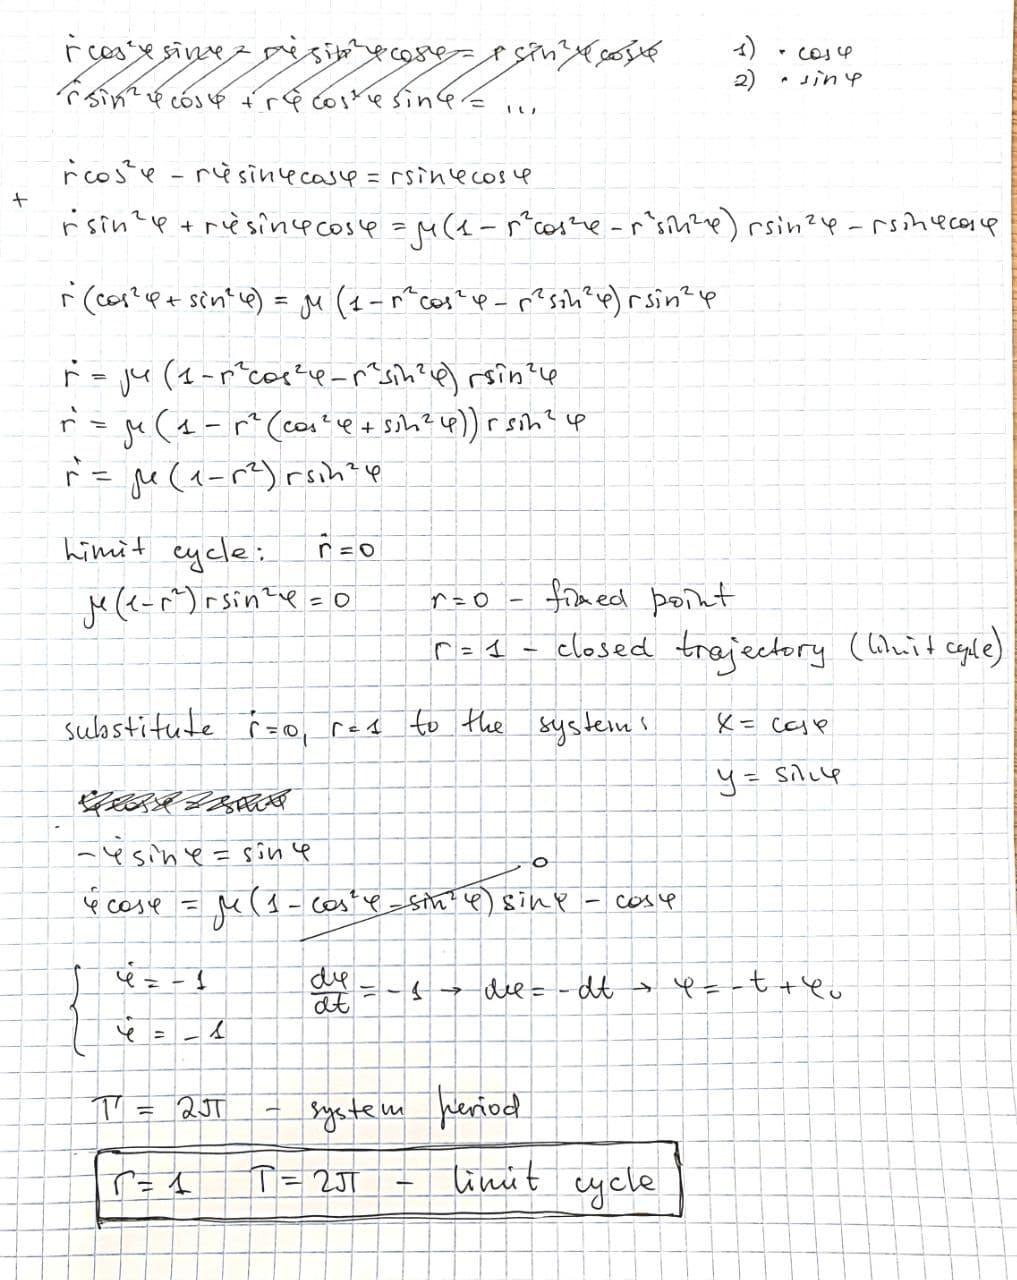 ṙcos²φ sinφ - rφ̇ sin²φ cosφ = r sin²φ cosφ 1) · cosφ
ṙ sin²φ cosφ + rφ̇ cos²φ sinφ = ... 2) · sinφ
ṙcos²φ - rφ̇ sinφcosφ = rsinφcosφ
+
ṙ sin²φ + rφ̇ sinφcosφ = μ(1 - r²cos²φ - r²sin²φ) rsin²φ - rsinφcosφ
ṙ(cos²φ + sin²φ) = μ(1 - r²cos²φ - r²sin²φ) rsin²φ
ṙ = μ(1 - r²cos²φ - r²sin²φ) rsin²φ
ṙ = μ(1 - r²(cos²φ + sin²φ)) r sin²φ
ṙ = μ(1 - r²) rsin²φ
Limit cycle: ṙ = 0
μ(1 - r²) rsin²φ = 0 r = 0 - fixed point
r = 1 - closed trajectory (limit cycle)
substitute ṙ=0, r=1 to the system: x = cosφ
y = sinφ
-φ̇ sinφ = sinφ
0
φ̇ cosφ = μ(1 - cos²φ - sin²φ) sinφ - cosφ
{ φ̇ = -1 dφ/dt = -1 → dφ = -dt → φ = -t + φ₀
φ̇ = -1
T = 2π - system period
r = 1 T = 2π - limit cycle